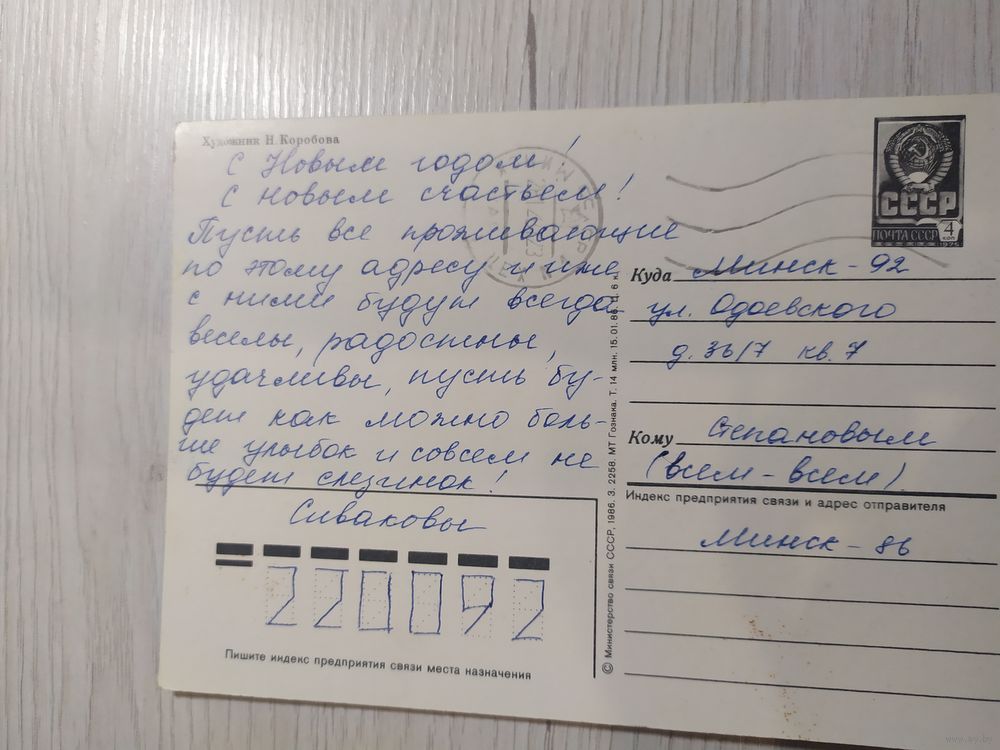 Художник Н. Коробова
С Новым годом!
С новым счастьем!
Пусть все проживающие
по этому адресу и иже
с ними будут всегда
веселы, радостны,
удачливы, пусть бу-
дет как можно боль-
ше улыбок и совсем не
будет слезинок!
Сиваковы
220092
Пишите индекс предприятия связи места назначения
© Министерство связи СССР, 1986. З. 2258. МТ Гознака. Т. 14 млн. 15.01.86. Ц. 6 к.
СССР
ПОЧТА СССР 4 коп
1975
Куда Минск - 92
ул. Одоевского
д. 36/7 кв. 7
Кому Степановым
(всем - всем)
Индекс предприятия связи и адрес отправителя
Минск - 86